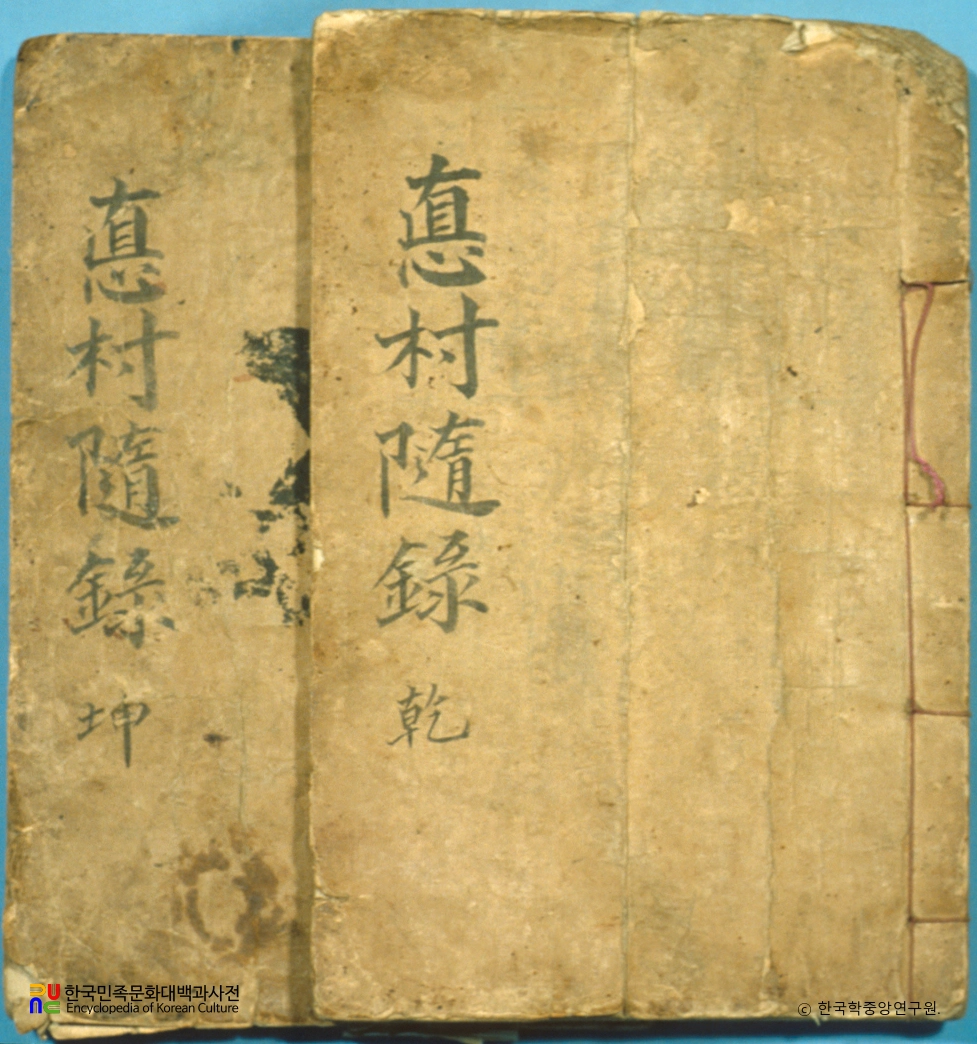 悳村隨錄 乾
悳村隨錄 坤
한국민족문화대백과사전
Encyclopedia of Korean Culture
© 한국학중앙연구원.